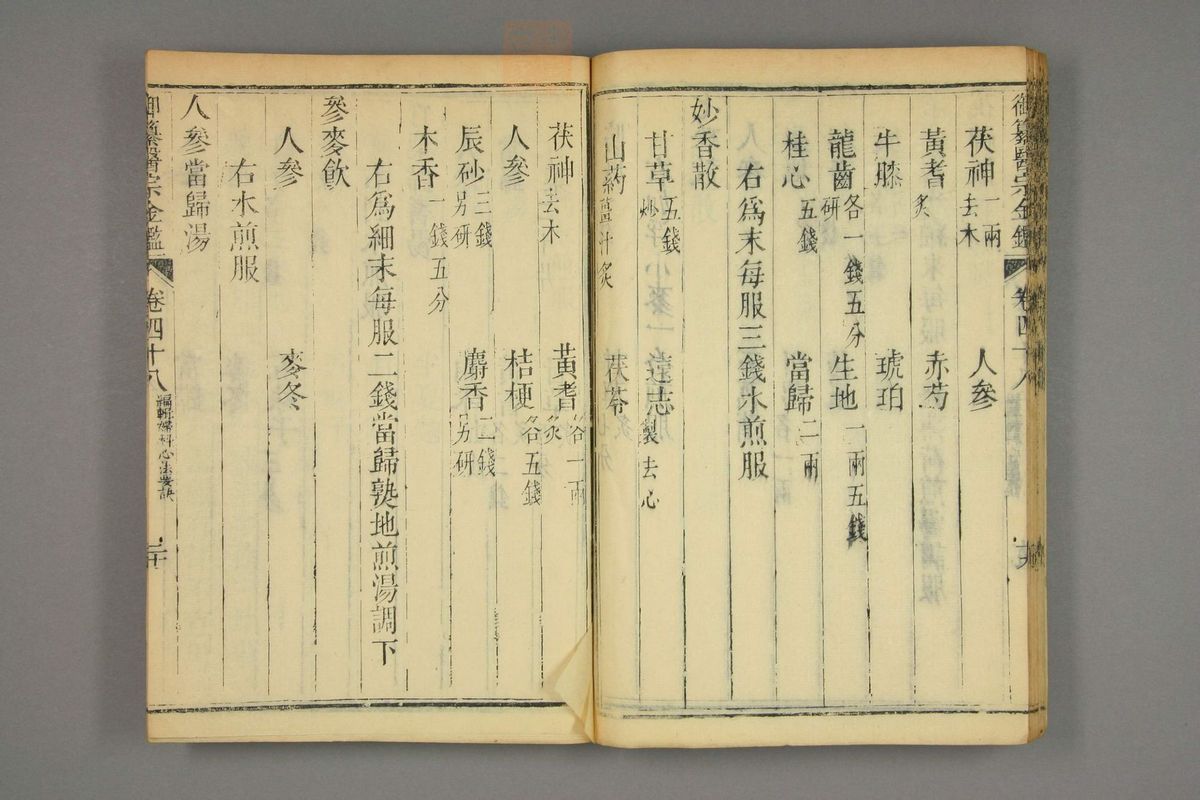 茯神一兩去木 人參
黃耆炙 赤芍
牛膝 琥珀
龍齒各一錢五分研 生地一兩五錢
桂心五錢 當歸二兩
右爲末每服三錢水煎服
妙香散
甘草五錢炒 遠志製去心
山葯薑汁炙 茯苓
茯神去木 黃耆各一兩炙
人參 桔梗各五錢
辰砂三錢另研 麝香一錢另研
木香一錢五分
右爲細末每服二錢當歸熟地煎湯調下
參麥飲
人參 麥冬
右水煎服
人參當歸湯
御纂醫宗金鑑 卷四十八 編輯婦科心法要訣